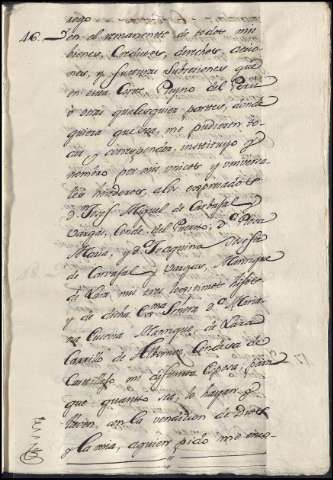 46. En el remanente de todos mis
bienes, Creditos, derechos, accio-
nes, y futuras Subcesiones que
en esta Corte, Reyno del Perù
ù otras qualesquier partes, donde
quiera que sea, me pudieren to-
car y corresponder, instituyo y
nombro por mis unicos y universa-
les herederos, a los expresados
Dn. Miguel de Carbajal y
Vargas, Conde del Puerto; Da.
Maria, y Da. Joaquina
de Carvajal y Vargas, Manrique
de Lara mis tres legitimos hijos
y de dicha Exma Señora Da. Maria-
na Manrique de Lara
Carrillo de Albornoz, Condesa de
mi difunta Esposa, para
que quanto sea, lo hayan y
lleven con la vendicion de Dios
y la mia, a quien pido me enco-